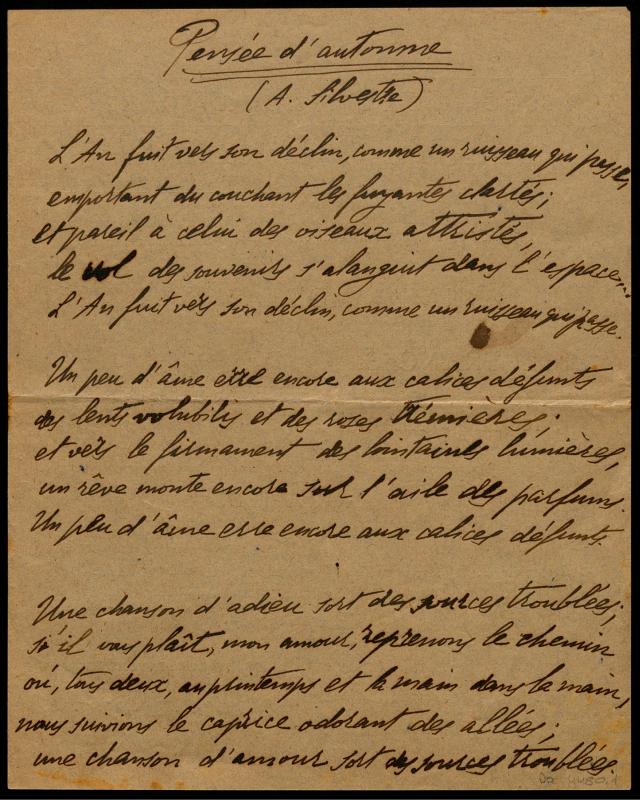 Pensée d'automne
(A. Silvestre)
L'An fuit vers son déclin, comme un ruisseau qui passe,
emportant du couchant les fuyantes clartés;
et pareil à celui des oiseaux attristés,
le vol des souvenirs s'alanguit dans l'espace...
L'An fuit vers son déclin, comme un ruisseau qui passe.
Un peu d'âme erre encore aux calices défunts
des lents volubilis et des roses trémières;
et vers le firmament des lointaines lumières,
un rêve monte encore sur l'aile des parfums.
Un peu d'âme erre encore aux calices défunts.
Une chanson d'adieu sort des sources troublées;
s'il vous plaît, mon amour, reprenons le chemin
où, tous deux, au printemps et la main dans la main,
nous suivions le caprice odorant des allées;
une chanson d'amour sort des sources troublées.